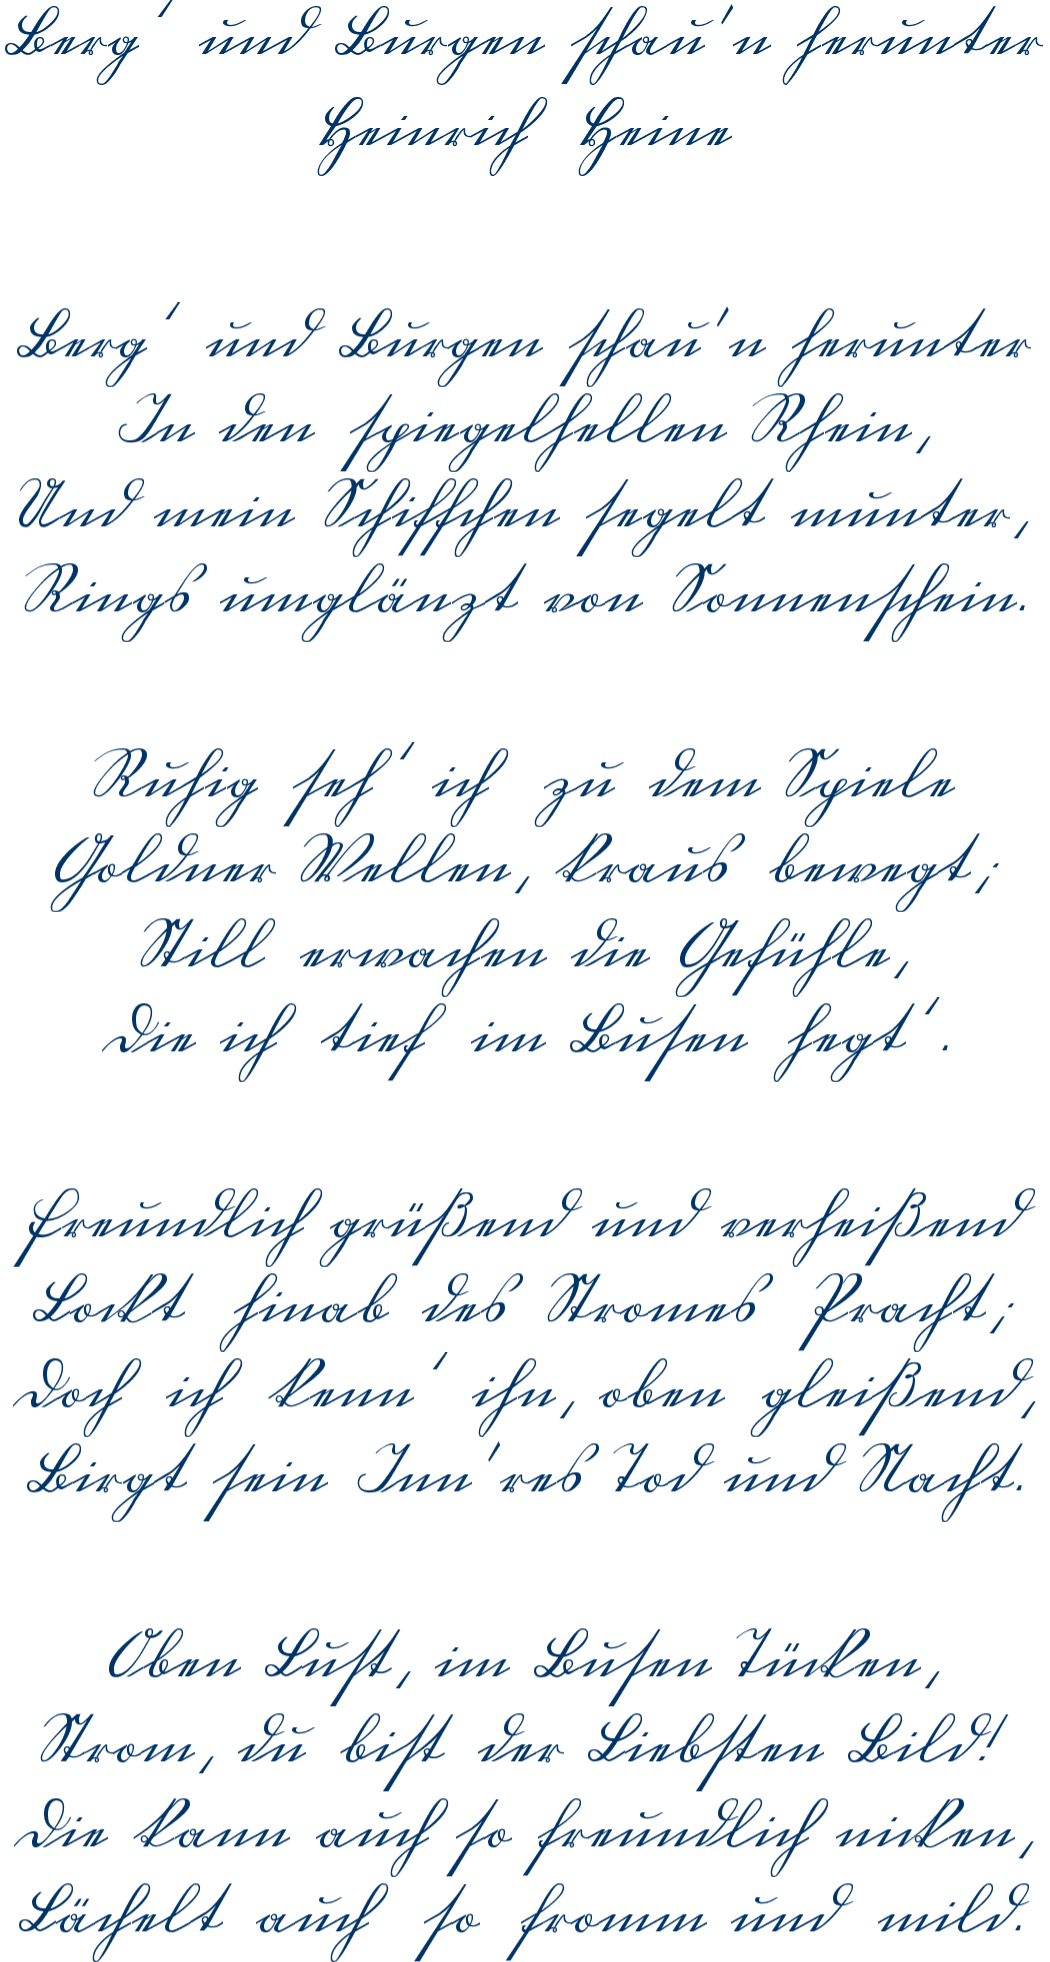 Berg' und Burgen schau'n herunter
Heinrich Heine
Berg' und Burgen schau'n herunter
In den spiegelhellen Rhein,
Und mein Schiffchen segelt munter,
Rings umglänzt von Sonnenschein.
Ruhig seh' ich zu dem Spiele
Goldner Wellen, kraus bewegt;
Still erwachen die Gefühle,
Die ich tief im Busen hegt'.
Freundlich grüßend und verheißend
Lockt hinab des Stromes Pracht;
Doch ich kenn' ihn, oben gleißend,
Birgt sein Inn'res Tod und Nacht.
Oben Lust, im Busen Tücken,
Strom, du bist der Liebsten Bild!
Die kann auch so freundlich nicken,
Lächelt auch so fromm und mild.